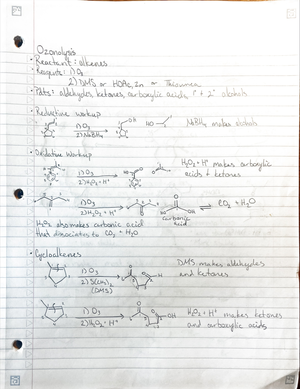 Ozonolysis
• Reactant: alkenes
• Reagents: 1) O₃
2) DMS or HOAc, Zn or Thiourea
• Pdts: aldehydes, ketones, carboxylic acids, 1° + 2° alcohols
• Reductive workup
1) O₃
2) NaBH₄
OH
HO
NaBH₄ makes alcohols
• Oxidative workup
1) O₃
2) H₂O₂ + H⁺
H₂O₂ + H⁺ makes carboxylic
acids + ketones
1) O₃
2) H₂O₂ + H⁺
HO OH
⇌ CO₂ + H₂O
carbonic
acid
H₂O₂ also makes carbonic acid
that dissociates to CO₂ + H₂O
• Cycloalkenes
1) O₃
2) S(CH₃)₂
(DMS)
H
DMS makes aldehydes
and ketones
1) O₃
2) H₂O₂ + H⁺
OH
H₂O₂ + H⁺ makes ketones
and carboxylic acids